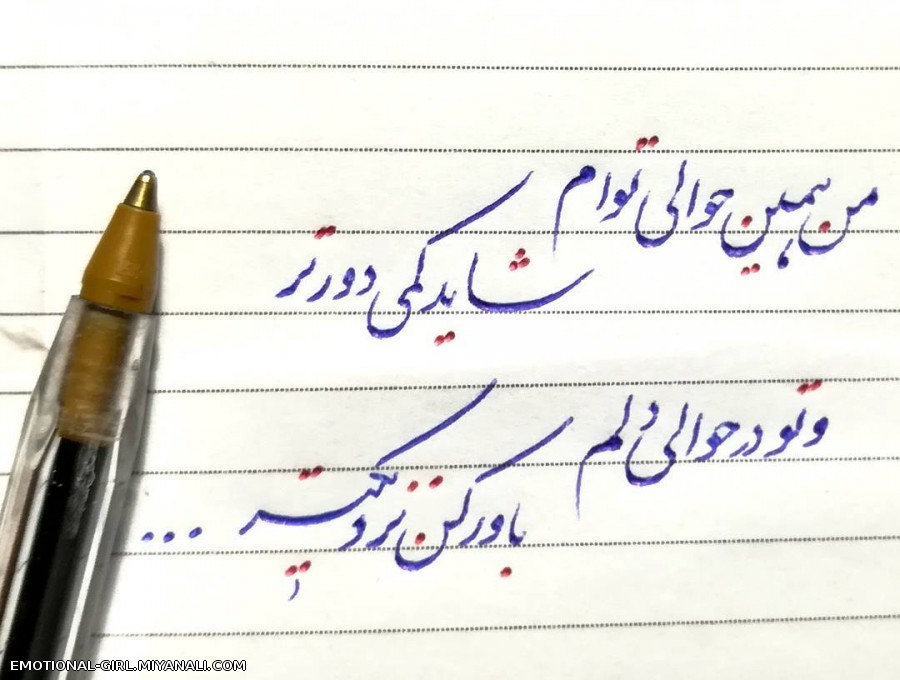 من همین حوالی توام
شاید کمی دورتر
و تو در حوالی دلم
باور کن نزدیکتر ...
EMOTIONAL-GIRL.MIYANALI.COM